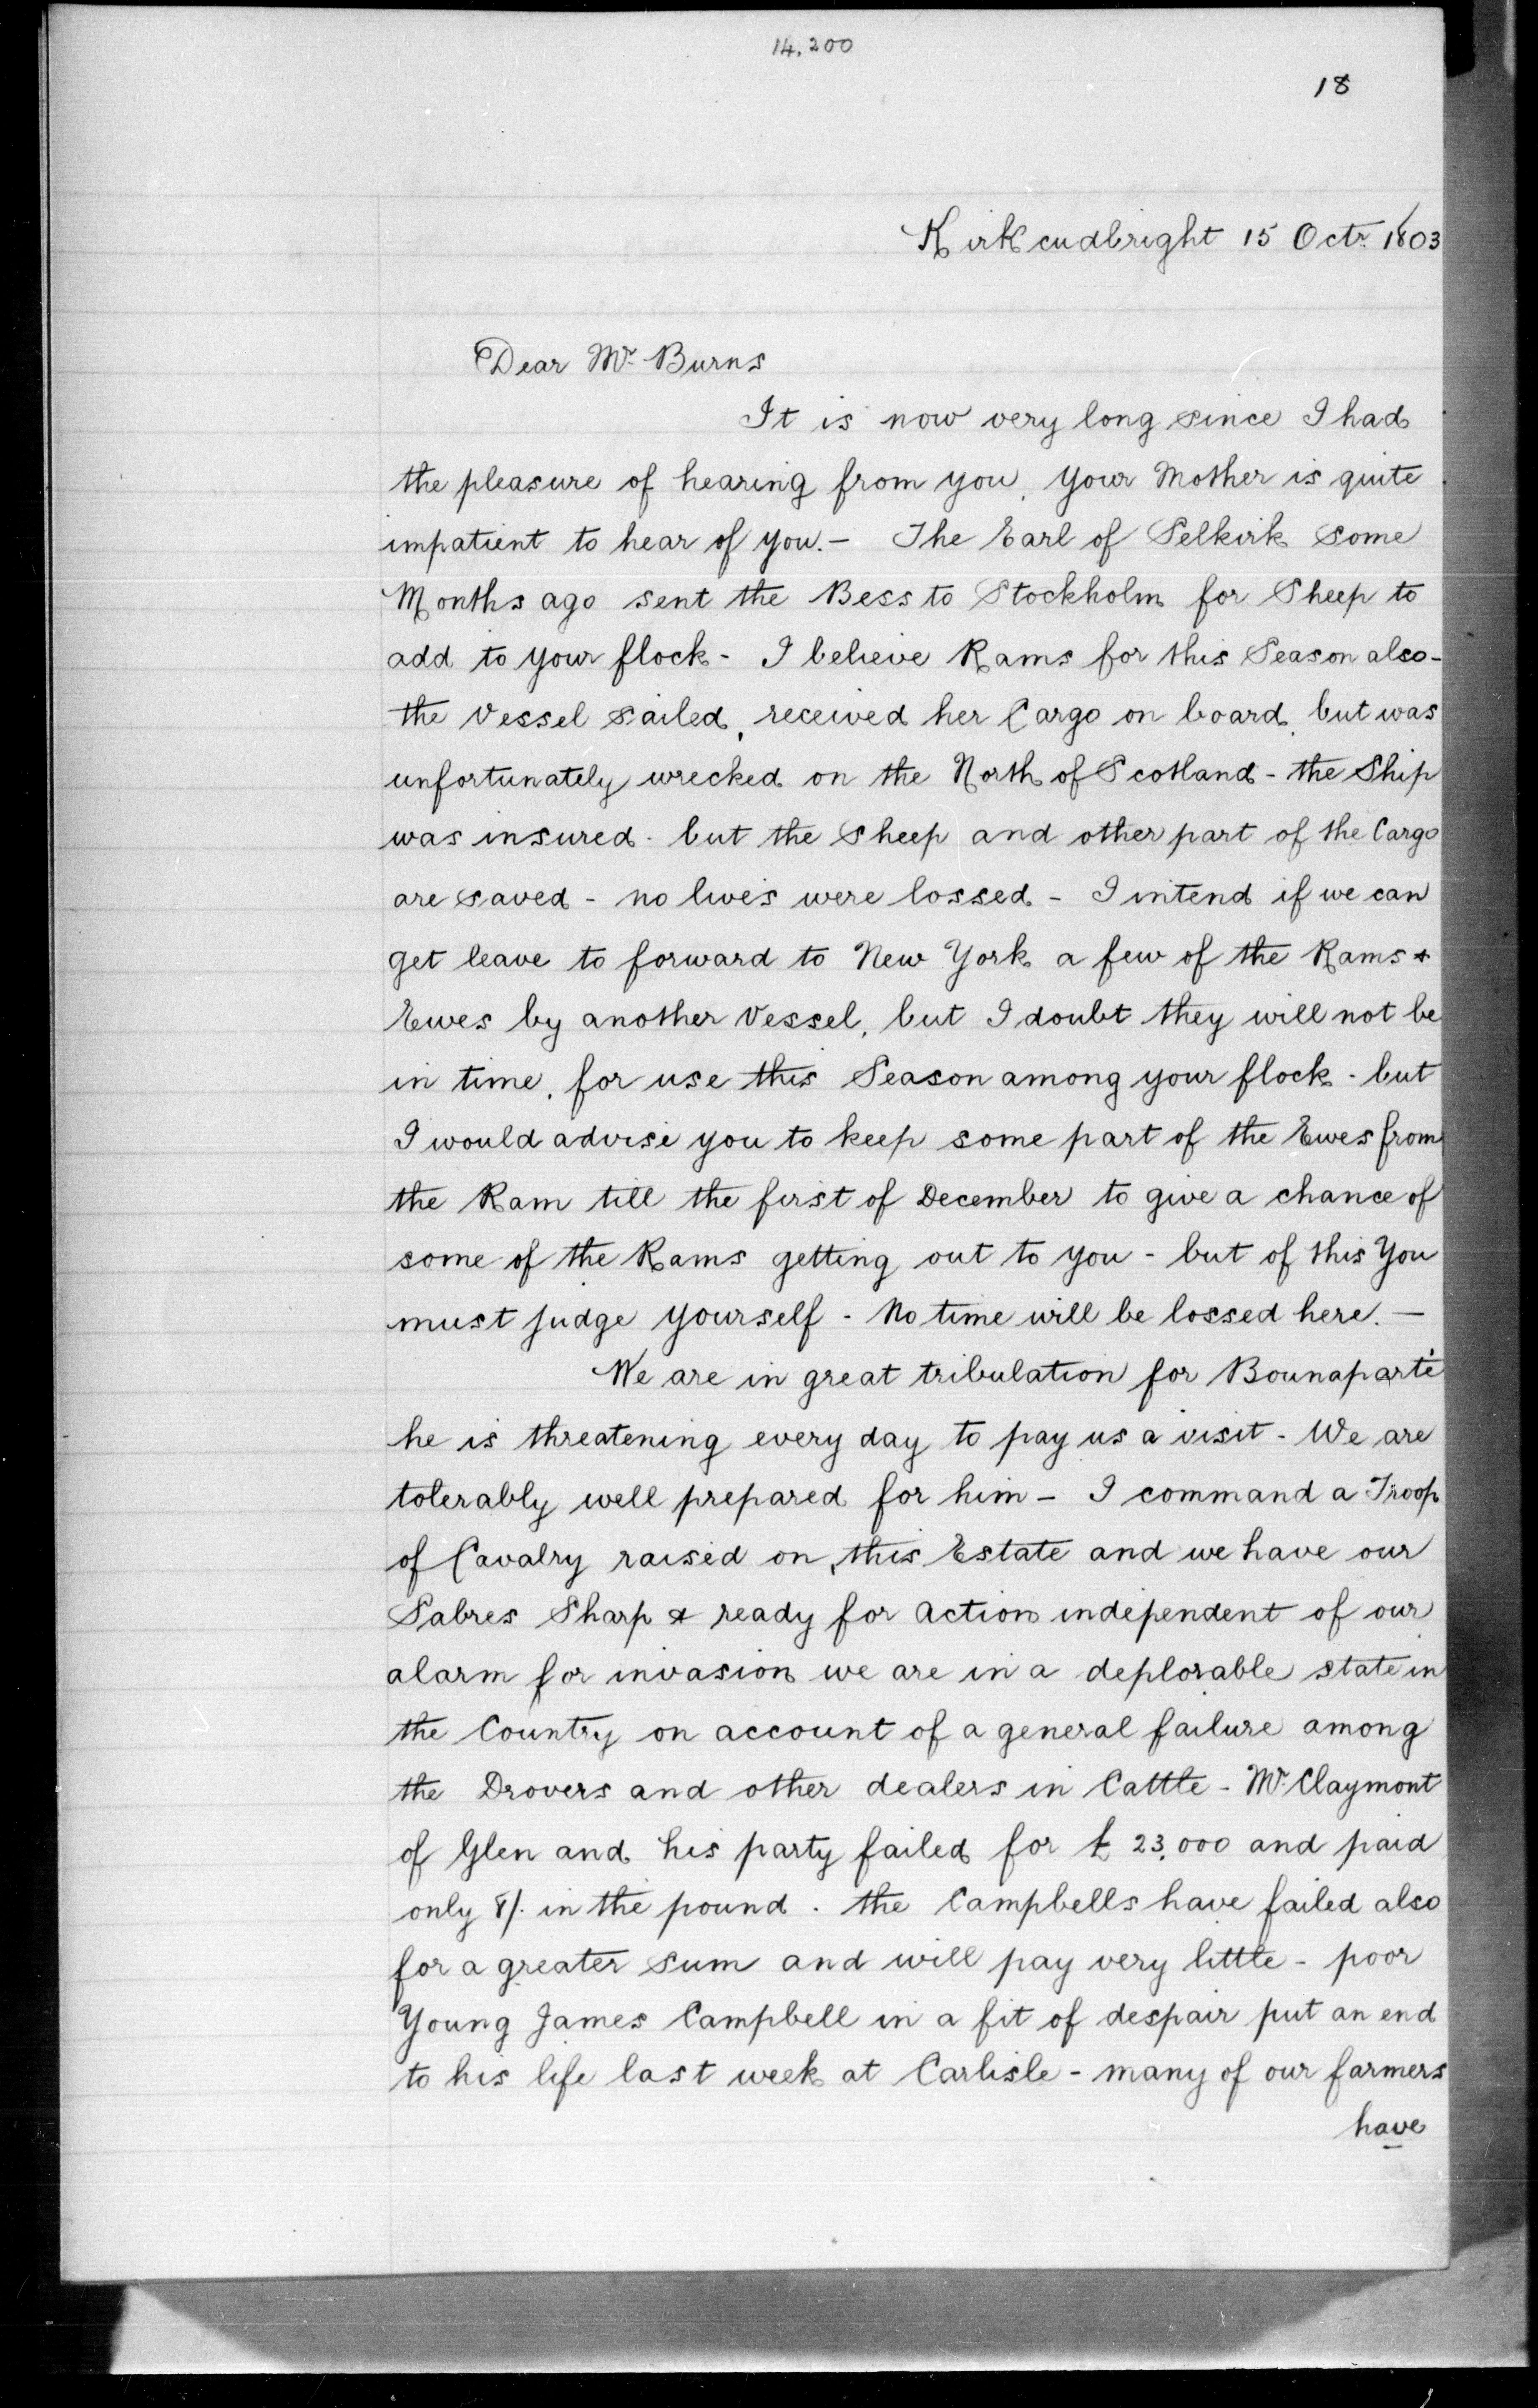 14,200
18
Kirkcudbright 15 Octr. 1803
Dear Mr. Burns
It is now very long since I had
the pleasure of hearing from you, your Mother is quite
impatient to hear of you. — The Earl of Selkirk some
Months ago sent the Bess to Stockholm for Sheep to
add to your flock - I believe Rams for this Season also -
the Vessel sailed, received her Cargo on board, but was
unfortunately wrecked on the North of Scotland - the Ship
was insured - but the sheep and other part of the Cargo
are saved - no lives were lossed - I intend if we can
get leave to forward to New York a few of the Rams &
Ewes by another Vessel, but I doubt they will not be
in time, for use this Season among your flock - but
I would advise you to keep some part of the Ewes from
the Ram till the first of December to give a chance of
some of the Rams getting out to you - but of this You
must judge yourself - No time will be lossed here. —
We are in great tribulation for Bounaparté
he is threatening every day to pay us a visit - We are
tolerably well prepared for him - I command a Troop
of Cavalry raised on this Estate and we have our
Sabres Sharp & ready for action independent of our
alarm for invasion we are in a deplorable state in
the Country on account of a general failure among
the Drovers and other dealers in Cattle - Mr. Claymont
of Glen and his party failed for £ 23,000 and paid
only 8/. in the pound. the Campbells have failed also
for a greater sum and will pay very little - poor
Young James Campbell in a fit of despair put an end
to his life last week at Carlisle - many of our farmers
have